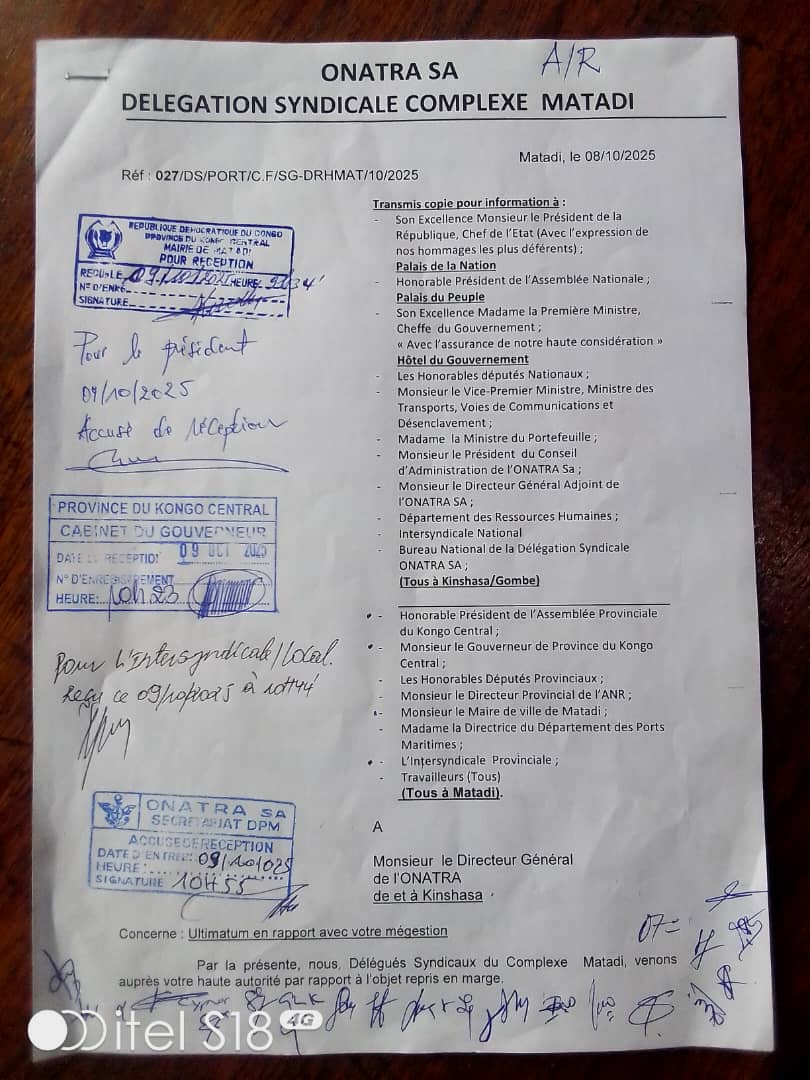 A/R
ONATRA SA
DELEGATION SYNDICALE COMPLEXE MATADI
Matadi, le 08/10/2025
Réf : 027/DS/PORT/C.F/SG-DRHMAT/10/2025
REPUBLIQUE DEMOCRATIQUE DU CONGO
PROVINCE DU KONGO CENTRAL
MAIRIE DE MATADI
POUR RECEPTION
RECU LE 09/10/2025 HEURE
N° D'ENRE
SIGNATURE
Pour le président
09/10/2025
Accusé de réception
PROVINCE DU KONGO CENTRAL
CABINET DU GOUVERNEUR
DATE DE RECEPTION 09 OCT 2025
N° D'ENREGISTREMENT
HEURE: 10h23
Pour L'Intersyndicale/Local.
Reçu ce 09/10/2025 à 10H44'
ONATRA SA
SECRETARIAT DPM
ACCUSE DE RECEPTION
DATE D'ENTREE: 09/10/025
HEURE :
SIGNATURE 10H55
Transmis copie pour information à :
- Son Excellence Monsieur le Président de la
République, Chef de l'Etat (Avec l'expression de
nos hommages les plus déférents) ;
Palais de la Nation
- Honorable Président de l'Assemblée Nationale ;
Palais du Peuple
- Son Excellence Madame la Première Ministre,
Cheffe du Gouvernement ;
« Avec l'assurance de notre haute considération »
Hôtel du Gouvernement
- Les Honorables députés Nationaux ;
- Monsieur le Vice-Premier Ministre, Ministre des
Transports, Voies de Communications et
Désenclavement ;
- Madame la Ministre du Portefeuille ;
- Monsieur le Président du Conseil
d'Administration de l'ONATRA Sa ;
- Monsieur le Directeur Général Adjoint de
l'ONATRA SA ;
- Département des Ressources Humaines ;
- Intersyndicale National
- Bureau National de la Délégation Syndicale
ONATRA SA ;
(Tous à Kinshasa/Gombe)
- Honorable Président de l'Assemblée Provinciale
du Kongo Central ;
- Monsieur le Gouverneur de Province du Kongo
Central ;
- Les Honorables Députés Provinciaux ;
- Monsieur le Directeur Provincial de l'ANR ;
- Monsieur le Maire de ville de Matadi ;
- Madame la Directrice du Département des Ports
Maritimes ;
- L'Intersyndicale Provinciale ;
- Travailleurs (Tous)
(Tous à Matadi).
A
Monsieur le Directeur Général
de l'ONATRA
de et à Kinshasa
Concerne : Ultimatum en rapport avec votre mégestion
Par la présente, nous, Délégués Syndicaux du Complexe Matadi, venons
auprès votre haute autorité par rapport à l'objet repris en marge.
itel S18 4G